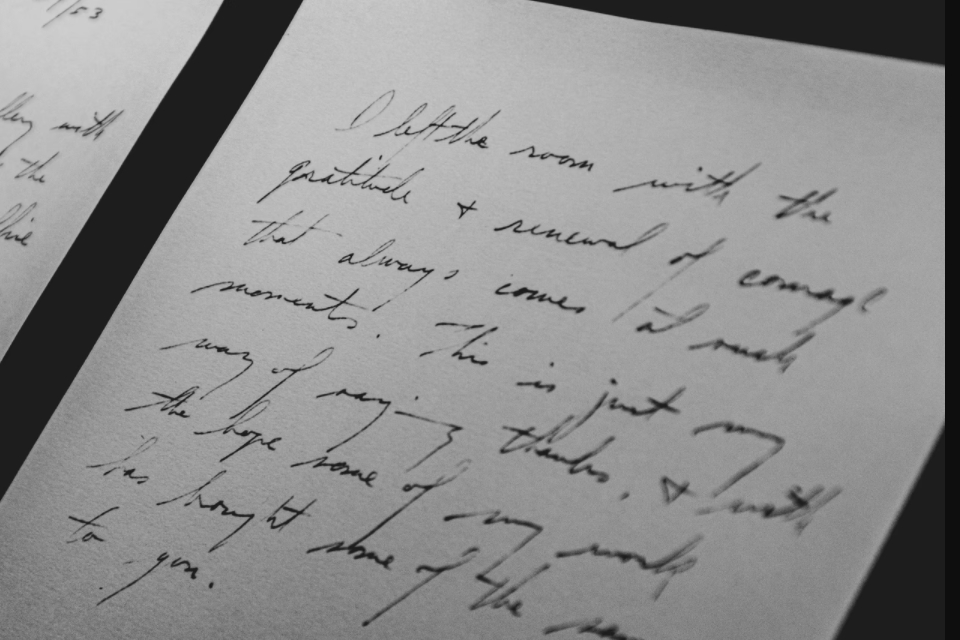 /53
with
the
I left the room with the
gratitude & renewal of courage
that always comes at such
moments. This is just my
way of saying thanks, & with
the hope some of my work
has brought some of the
to you.